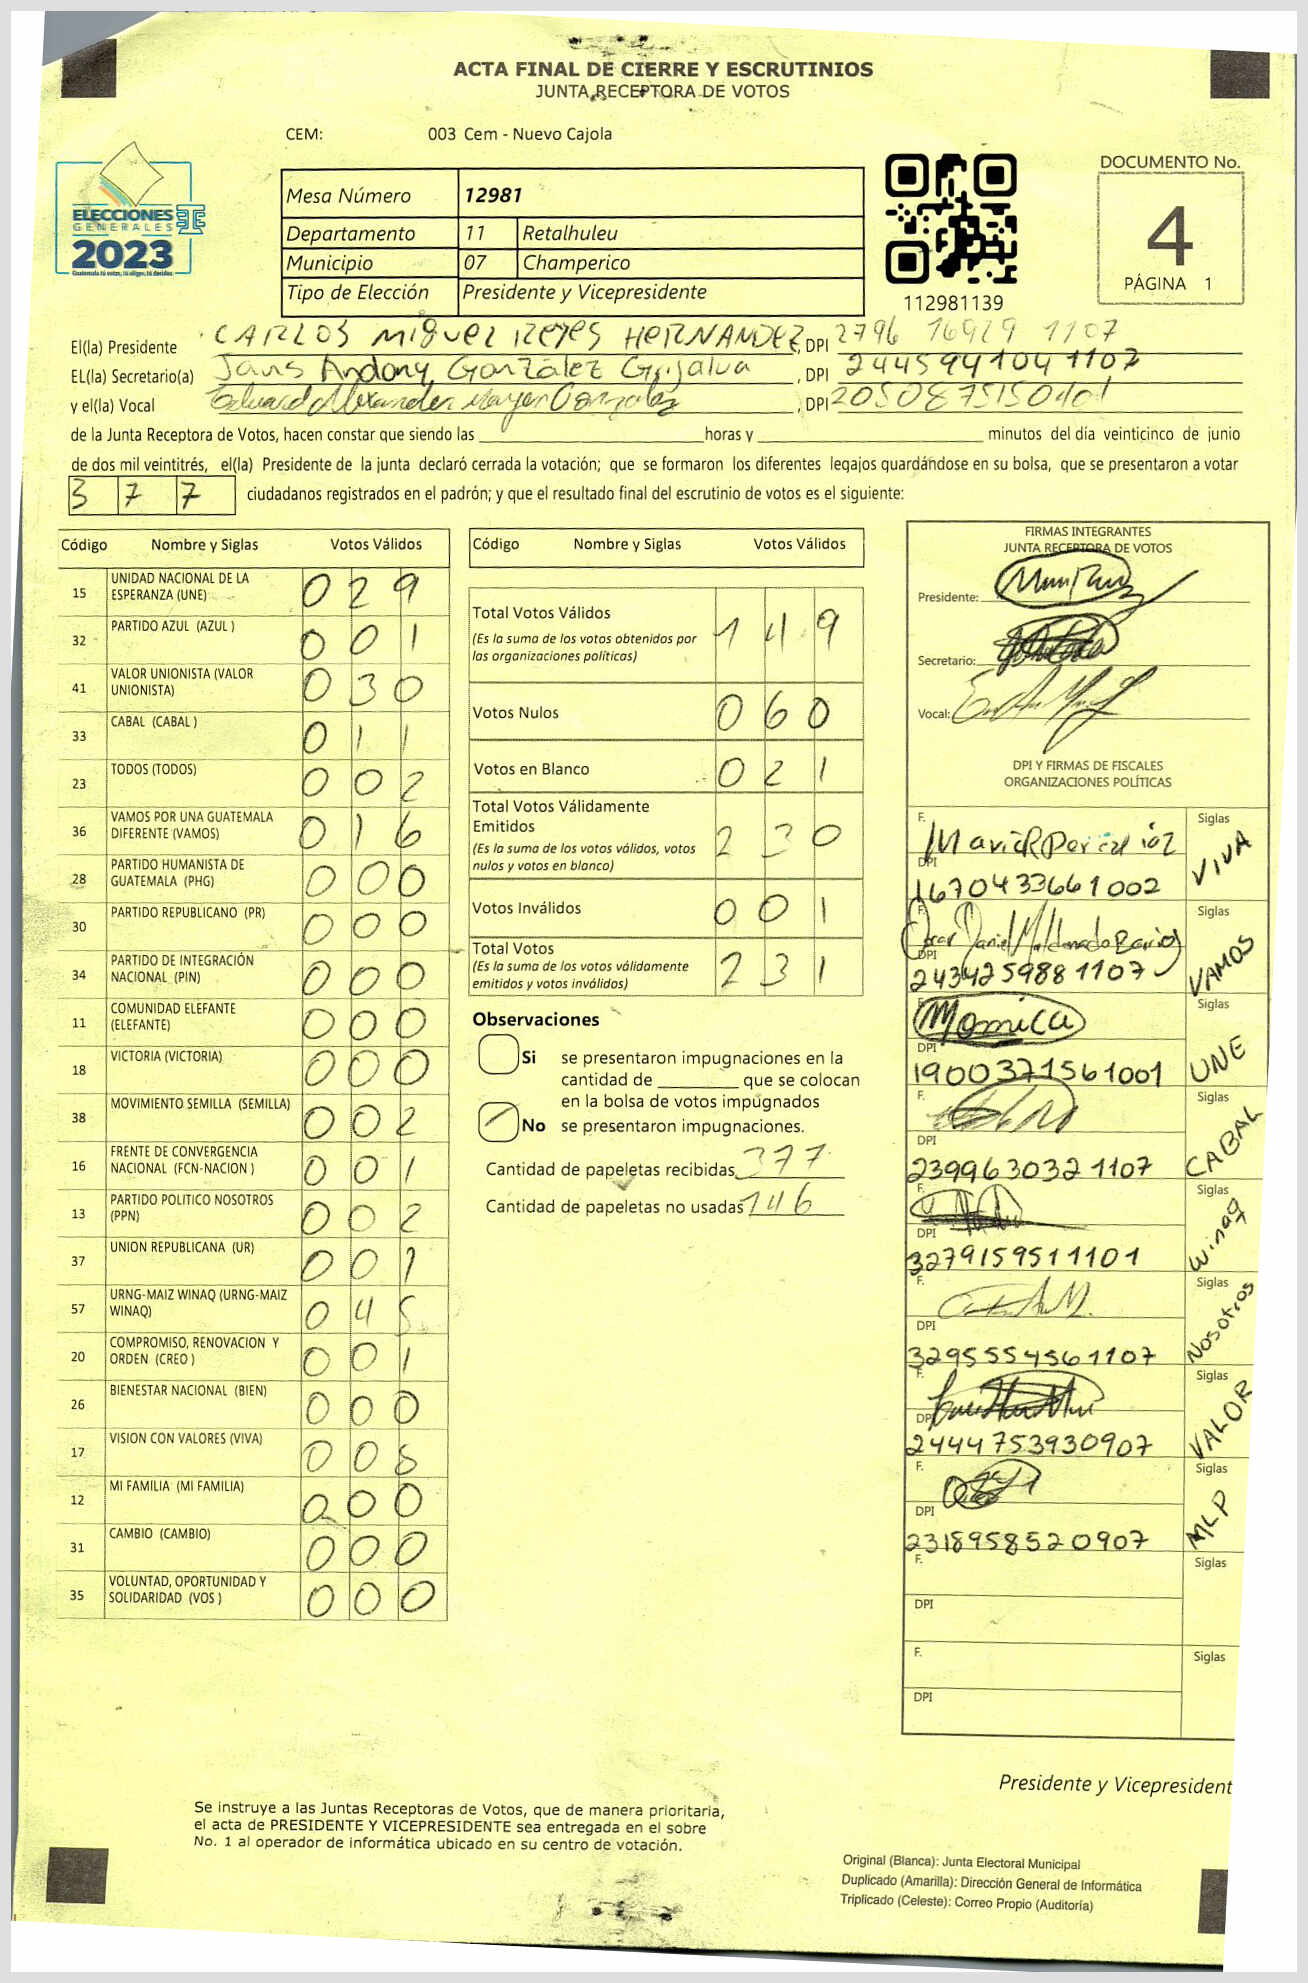 ACTA FINAL DE CIERRE Y ESCRUTINIOS
JUNTA RECEPTORA DE VOTOS
CEM: 003 Cem - Nuevo Cajola
ELECCIONES
GENERALES
2023
Guatemala tú votas, tú eliges, tú decides
Mesa Número 12981
Departamento 11 Retalhuleu
Municipio 07 Champerico
Tipo de Elección Presidente y Vicepresidente
112981139
DOCUMENTO No.
4
PÁGINA 1
El(la) Presidente CARLOS Miguel Reyes HERNANDEZ, DPI 2796 16929 1107
EL(la) Secretario(a) Janis Andony González Grijalva, DPI 2445941041107
y el(la) Vocal Eduard Alexander Mayen Gonzalez, DPI 2050875150101
de la Junta Receptora de Votos, hacen constar que siendo las horas y minutos del día veinticinco de junio
de dos mil veintitrés, el(la) Presidente de la junta declaró cerrada la votación; que se formaron los diferentes legajos guardándose en su bolsa, que se presentaron a votar
377 ciudadanos registrados en el padrón; y que el resultado final del escrutinio de votos es el siguiente:
Código Nombre y Siglas Votos Válidos
15 UNIDAD NACIONAL DE LA ESPERANZA (UNE) 029
32 PARTIDO AZUL (AZUL ) 001
41 VALOR UNIONISTA (VALOR UNIONISTA) 030
33 CABAL (CABAL ) 011
23 TODOS (TODOS) 002
36 VAMOS POR UNA GUATEMALA DIFERENTE (VAMOS) 016
28 PARTIDO HUMANISTA DE GUATEMALA (PHG) 000
30 PARTIDO REPUBLICANO (PR) 000
34 PARTIDO DE INTEGRACIÓN NACIONAL (PIN) 000
11 COMUNIDAD ELEFANTE (ELEFANTE) 000
18 VICTORIA (VICTORIA) 000
38 MOVIMIENTO SEMILLA (SEMILLA) 002
16 FRENTE DE CONVERGENCIA NACIONAL (FCN-NACION ) 001
13 PARTIDO POLITICO NOSOTROS (PPN) 002
37 UNION REPUBLICANA (UR) 001
57 URNG-MAIZ WINAQ (URNG-MAIZ WINAQ) 045
20 COMPROMISO, RENOVACION Y ORDEN (CREO ) 001
26 BIENESTAR NACIONAL (BIEN) 000
17 VISION CON VALORES (VIVA) 008
12 MI FAMILIA (MI FAMILIA) 000
31 CAMBIO (CAMBIO) 000
35 VOLUNTAD, OPORTUNIDAD Y SOLIDARIDAD (VOS ) 000
Código Nombre y Siglas Votos Válidos
Total Votos Válidos 149
(Es la suma de los votos obtenidos por
las organizaciones políticas)
Votos Nulos 060
Votos en Blanco 021
Total Votos Válidamente
Emitidos 230
(Es la suma de los votos válidos, votos
nulos y votos en blanco)
Votos Inválidos 001
Total Votos 231
(Es la suma de los votos válidamente
emitidos y votos inválidos)
Observaciones
Si se presentaron impugnaciones en la
cantidad de que se colocan
en la bolsa de votos impugnados
No se presentaron impugnaciones.
Cantidad de papeletas recibidas 377
Cantidad de papeletas no usadas 146
FIRMAS INTEGRANTES
JUNTA RECEPTORA DE VOTOS
Presidente:
Secretario:
Vocal:
DPI Y FIRMAS DE FISCALES
ORGANIZACIONES POLÍTICAS
F. Siglas VIVA
DPI 1670433661002
F. Oscar Daniel Maldonado Barrios Siglas VAMOS
DPI 2434259881107
F. Monica Siglas UNE
DPI 1900371561001
F. Siglas CABAL
DPI 2399630321107
F. Siglas Winaq
DPI 3279159511101
F. Siglas Nosotros
DPI 3295554561107
F. Siglas VALOR
DPI 2444753930907
F. Siglas MLP
DPI 2318958520907
F. Siglas
DPI
F. Siglas
DPI
Presidente y Vicepresident
Se instruye a las Juntas Receptoras de Votos, que de manera prioritaria,
el acta de PRESIDENTE Y VICEPRESIDENTE sea entregada en el sobre
No. 1 al operador de informática ubicado en su centro de votación.
Original (Blanca): Junta Electoral Municipal
Duplicado (Amarilla): Dirección General de Informática
Triplicado (Celeste): Correo Propio (Auditoría)